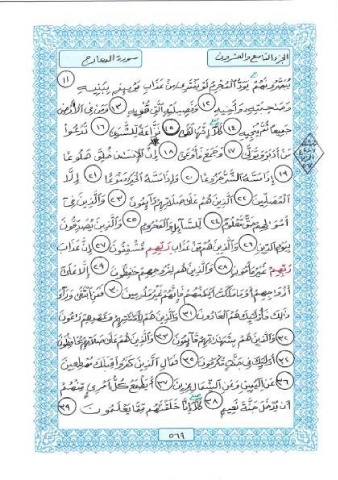 الجزء التاسع والعشرون
سورة المعارج
يبصرونهم يود المجرم لو يفتدى من عذاب يومئذ ببنيه ١١
وصحبته وأخيه ١٢ وفصيلته التى تؤيه ١٣ ومن فى الأرض
جميعا ثم ينجيه ١٤ كلا إنها لظى ١٥ نزاعة للشوى ١٦ تدعوا
من أدبر وتولى ١٧ وجمع فأوعى ١٨ إن الإنسن خلق هلوعا
١٩ إذا مسه الشر جزوعا ٢٠ وإذا مسه الخير منوعا ٢١ إلا
المصلين ٢٢ الذين هم على صلاتهم دآئمون ٢٣ والذين فى
أمولهم حق معلوم ٢٤ للسآئل والمحروم ٢٥ والذين يصدقون
بيوم الدين ٢٦ والذين هم من عذاب ربهم مشفقون ٢٧ إن عذاب
ربهم غير مأمون ٢٨ والذين هم لفروجهم حفظون ٢٩ إلا على
أزوجهم أو ما ملكت أيمنهم فإنهم غير ملومين ٣٠ فمن ابتغى ورآء
ذلك فأولئك هم العادون ٣١ والذين هم لأمنتهم وعهدهم راعون
٣٢ والذين هم بشهدتهم قآئمون ٣٣ والذين هم على صلاتهم يحافظون
٣٤ أولئك فى جنت مكرمون ٣٥ فمال الذين كفروا قبلك مهطعين
٣٦ عن اليمين وعن الشمال عزين ٣٧ أيطمع كل امرئ منهم
أن يدخل جنة نعيم ٣٨ كلا إنا خلقنهم مما يعلمون ٣٩
٥٦٩